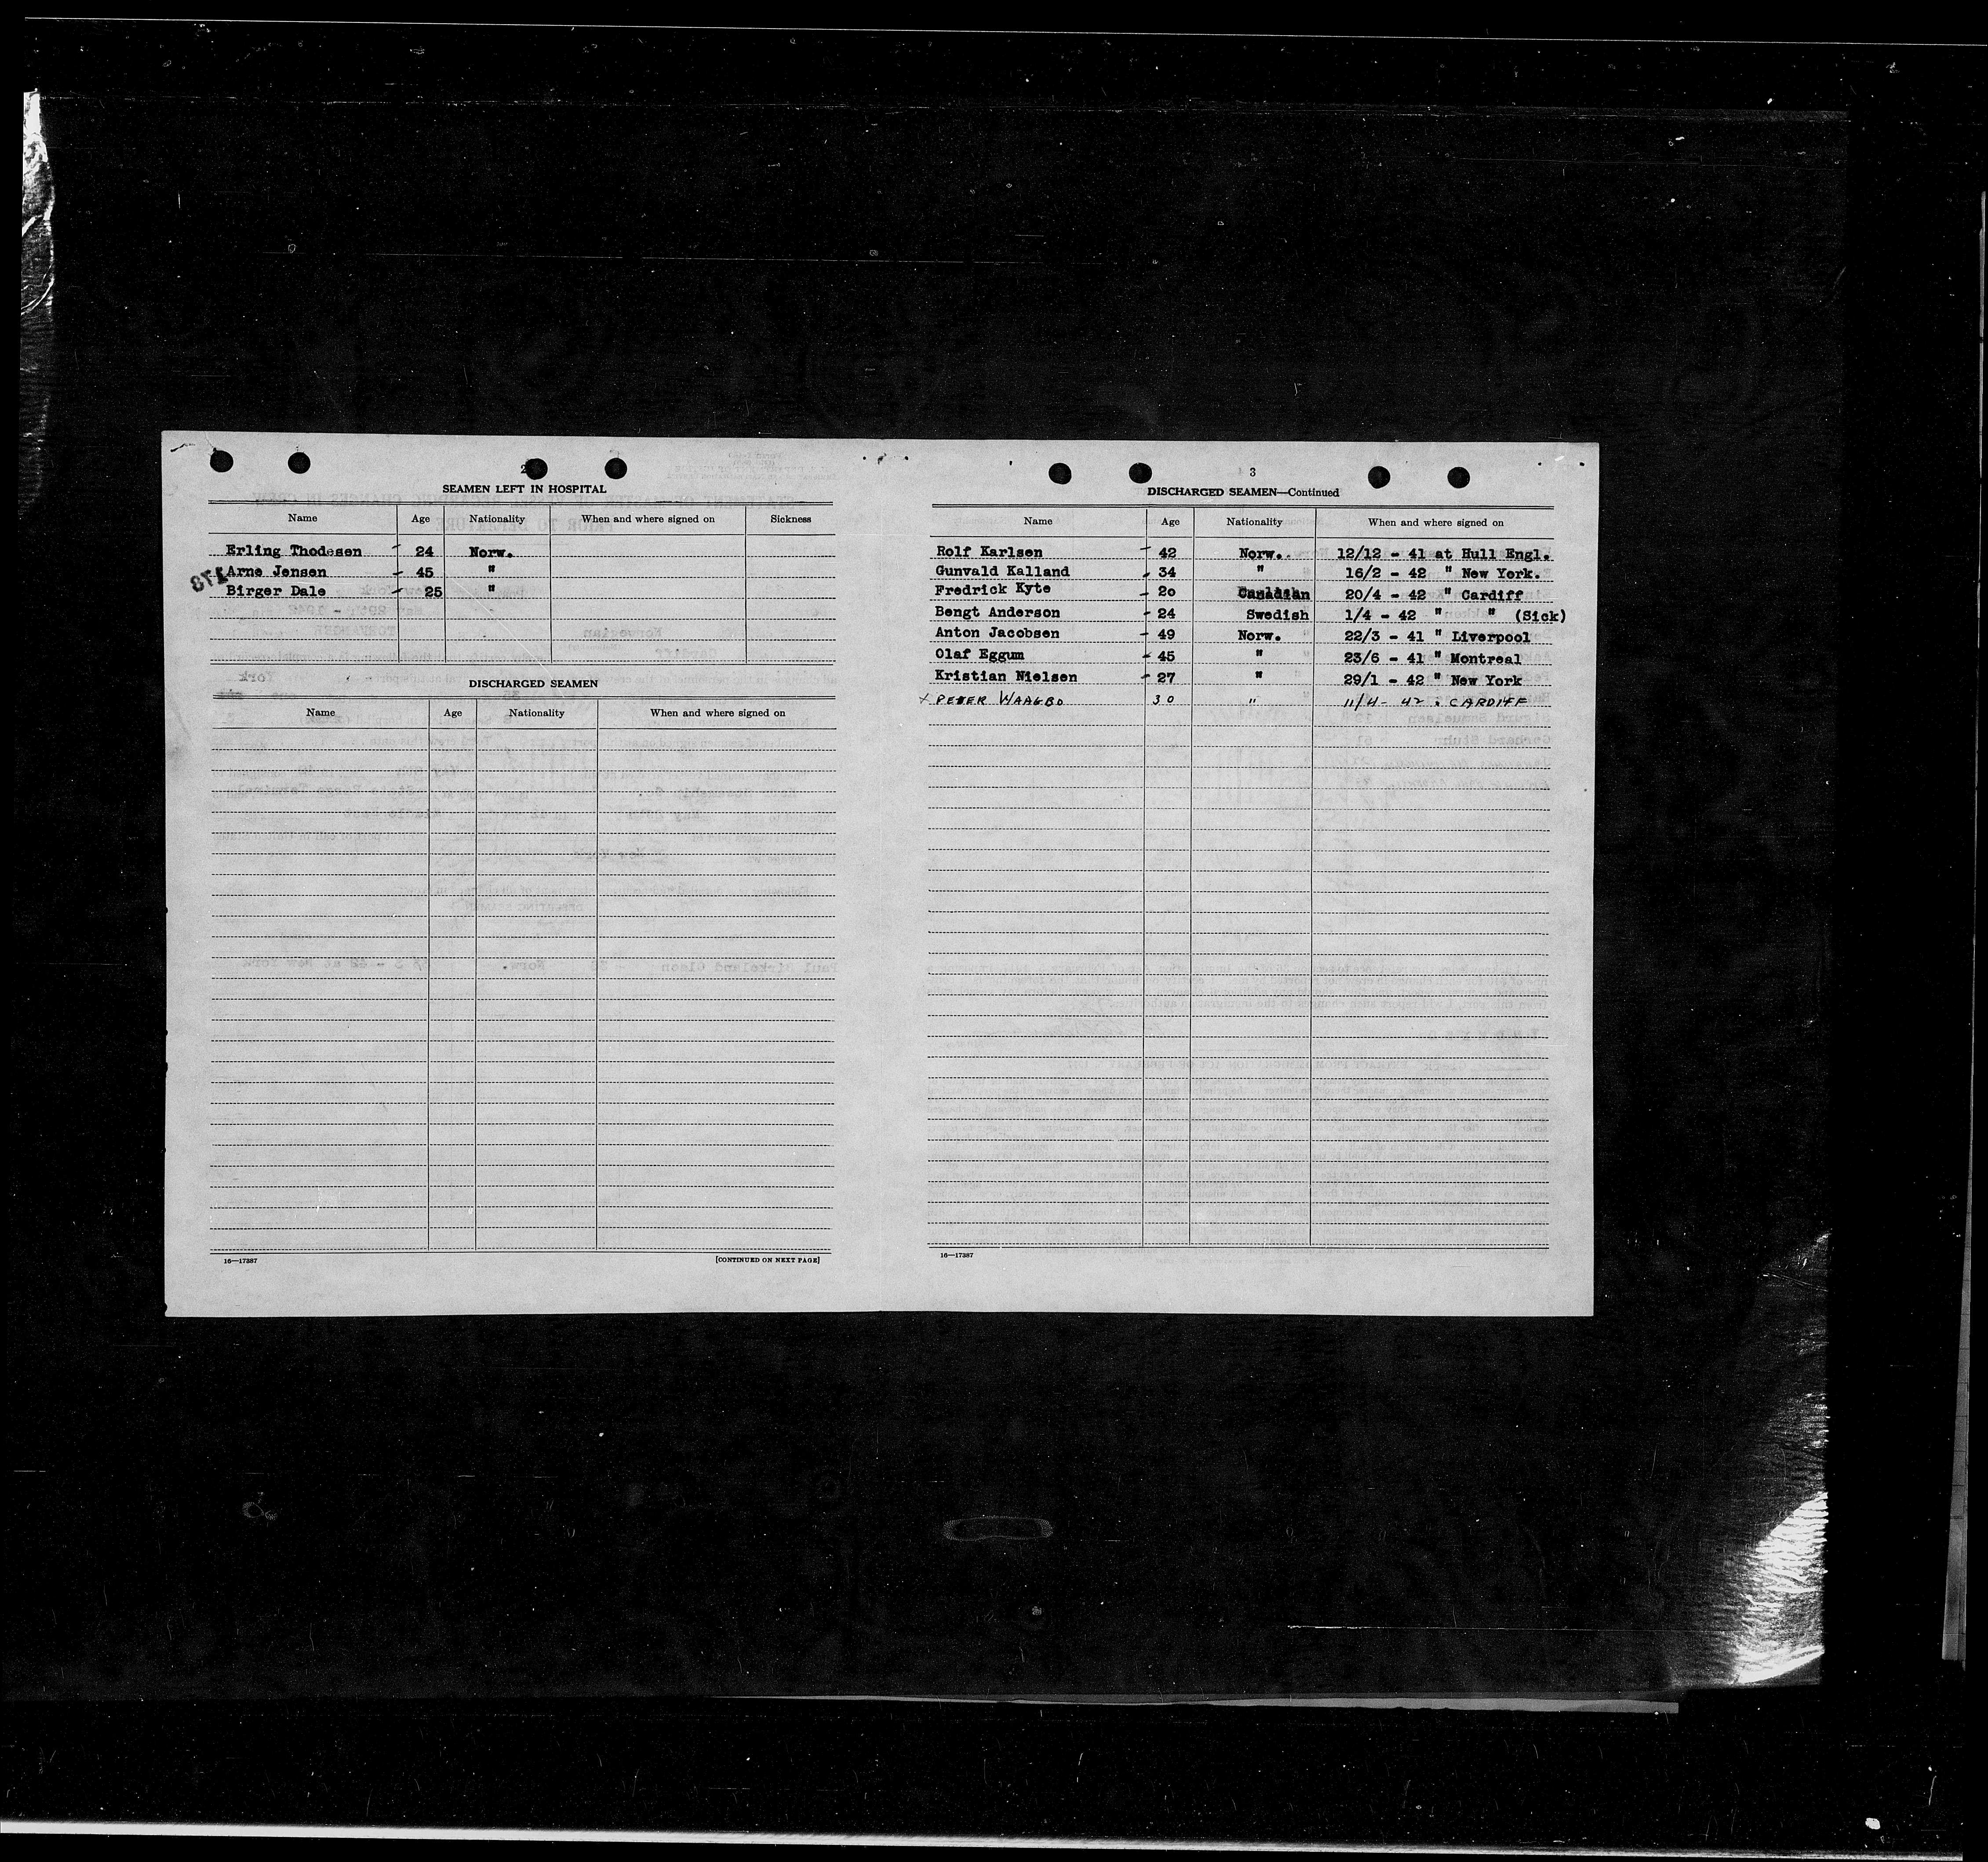 2
SEAMEN LEFT IN HOSPITAL
Name Age Nationality When and where signed on Sickness
Erling Thodesen - 24 Norw.
Arne Jensen - 45 "
Birger Dale - 25 "
178
DISCHARGED SEAMEN
Name Age Nationality When and where signed on
16—17387 [CONTINUED ON NEXT PAGE]
3
DISCHARGED SEAMEN—Continued
Name Age Nationality When and where signed on
Rolf Karlsen - 42 Norw. 12/12 - 41 at Hull Engl.
Gunvald Kalland - 34 " 16/2 - 42 " New York.
Fredrick Kyte - 20 Canadian 20/4 - 42 " Cardiff
Bengt Anderson - 24 Swedish 1/4 - 42 " " (Sick)
Anton Jacobsen - 49 Norw. 22/3 - 41 " Liverpool
Olaf Eggum - 45 " 23/6 - 41 " Montreal
Kristian Nielsen - 27 " 29/1 - 42 " New York
x PETER WAAGBO 30 " 11/4 - 42 " CARDIFF
16—17387